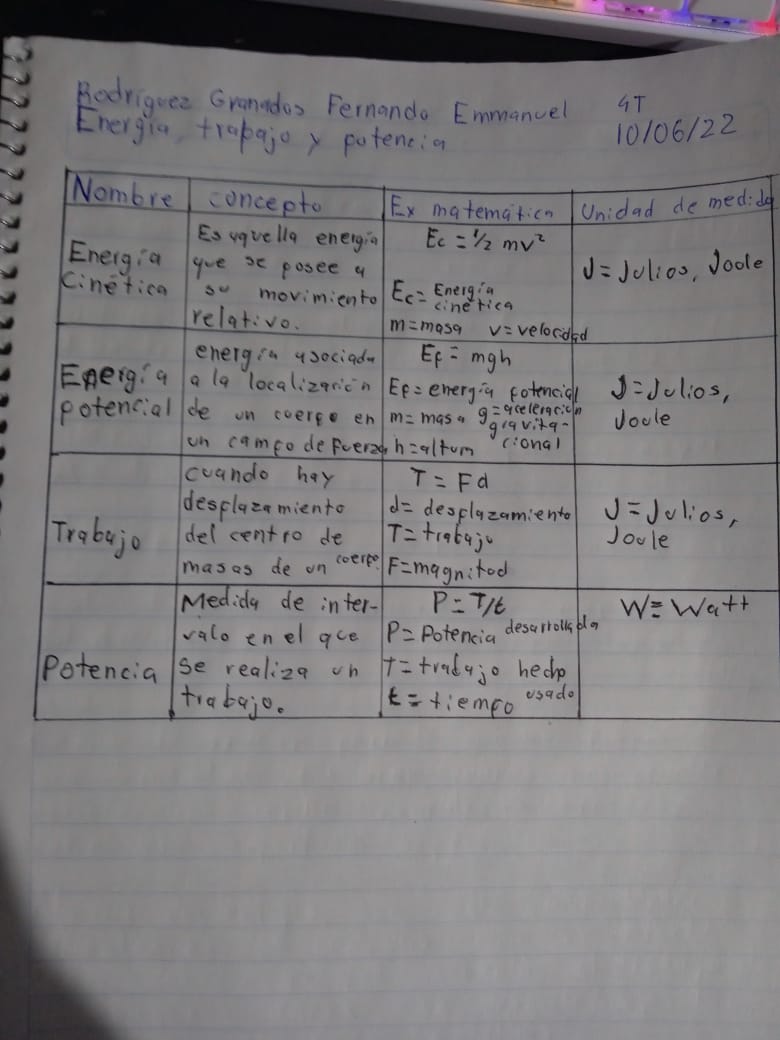 Rodríguez Granados Fernando Emmanuel 4T
Energía, trabajo y potencia 10/06/22
Nombre concepto Ex matemática Unidad de medida
Energía Cinética
Es aquella energía
que se posee a
su movimiento
relativo.
Ec = 1/2 mv²
Ec = Energía
cinética
m=masa v=velocidad
J=Julios, Joole
Energía
potencial
energía asociada
a la localización
de un cuerpo en
un campo de fuerza
Ep = mgh
Ep = energía potencial
m = masa g=aceleración
gravita-
cional
h=altura
J=Julios,
Joule
Trabajo
cuando hay
desplazamiento
del centro de
masas de un cuerpo.
T = Fd
d= desplazamiento
T= trabajo
F=magnitod
J=Julios,
Joule
Potencia
Medida de inter-
valo en el que
se realiza un
trabajo.
P=T/t
P= Potencia desarrollada
T= trabajo hecho
t = tiempo usado
W= Watt